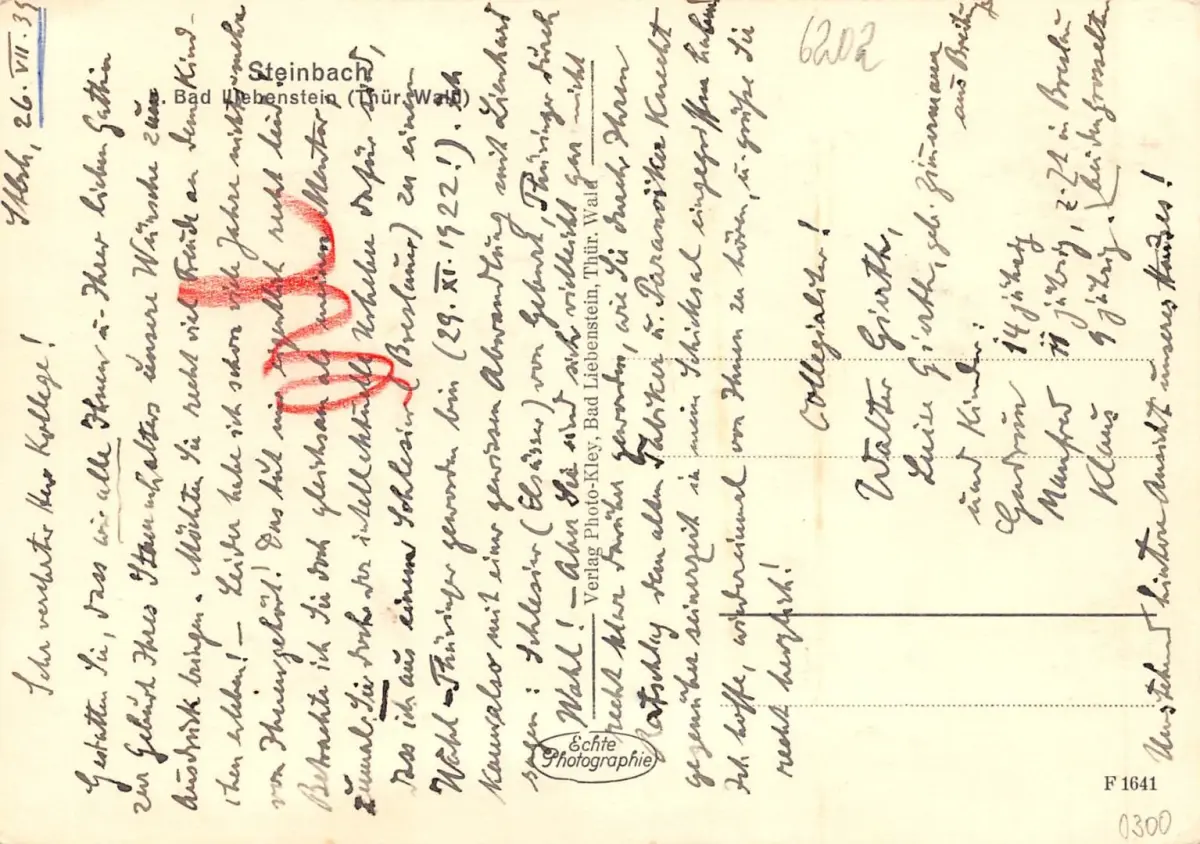 Stbch, 26. VII. 39
Sehr verehrter Herr Kollege!
Gestatten Sie, dass wir alle Ihnen u. Ihrer lieben Gattin
zur Geburt Ihres Stammhalters unsere Wünsche zum
Ausdruck bringen. Möchten Sie recht viel Freude an dem Kind-
chen erleben! – Leider habe ich schon viele Jahre nichts mehr
von Ihnen gehört! Das tut mir eigentlich recht leid.
Betrachte ich Sie doch gleichsam als meinen Mentor
zumal Sie doch der intellektuelle Urheber dafür sind,
das ich aus einem Schlesier (Breslauer) zu einem
Wahl-Thüringer geworden bin (29. XI. 1922!). Ich
kann also mit einer gewissen Abwandlung mit Lienhard
sagen: Schlesier (Elsässer) von Geburt, Thüringer durch
Wahl! – Aber Sie sind sich vielleicht gar nicht
recht klar darüber geworden, wie Sie durch Ihren
Ratschlag dem alten Fabriker u. Paramöiker Knecht
gegenüber seinerzeit in mein Schicksal eingegriffen haben
Ich hoffe, wiedereinmal von Ihnen zu hören, u. grüße Sie
recht herzlich!
Collegialiter!
Walter Gürth,
Luise Gürth, geb. Zimmermann
aus
und Kinder:
Gudrun 14 jährig
Manfred 11 jährig, z. Zt. in Breslau
Klaus 9 jährig. bei den Grosseltern
Umstehend hintere Ansicht unseres Hauses!
Steinbach
b. Bad Liebenstein (Thür. Wald)
Verlag Photo-Kley, Bad Liebenstein, Thür. Wald
Echte
Photographie
F 1641
6202
0300